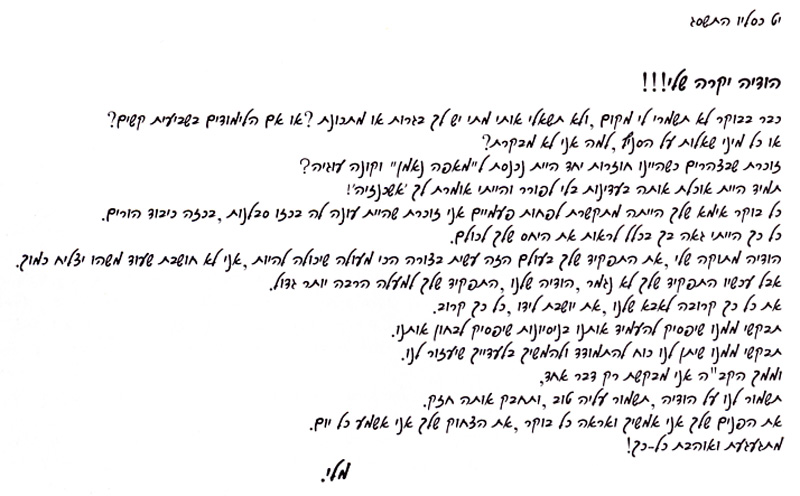 יט כסליו התשסג
הודיה יקרה שלי!!!
כבר בבוקר לא תשמרי לי מקום ,ולא תשאלי אותי מתי יש לך בגרות או מתכונת ?או אם הלימודים בשביעית קשים?
או כל מיני שאלות על הסניף ,למה אני לא מבקרת?
זוכרת שבצהרים כשהיינו חוזרות יחד היית נכנסת ל"מאפה נאמן" וקונה עוגיה?
תמיד היית אוכלת אותה בעדינות בלי לפורר והייתי אומרת לך 'אשכנזיה'!
כל בוקר אימא שלך הייתה מתקשרת לפחות פעמיים אני זוכרת שהיית עונה לה בכזו סבלנות ,בכזה כיבוד הורים.
כל כך הייתי גאה בך בכלל לראות את היחס שלך לכולם.
הודיה מתוקה שלי ,את התפקיד שלך בעולם הזה עשית בצורה הכי מעולה שיכולה להיות ,אני לא חושבת שעוד משהו יצליח כמוך.
אבל עכשיו התפקיד שלך לא נגמר ,הודיה שלנו ,התפקיד שלך למעלה הרבה יותר גדול.
את כל כך קרובה לאבא שלנו ,את יושבת לידו ,כל כך קרוב.
תבקשי ממנו שיפסיק להעמיד אותנו בניסיונות שיפסיק לבחון אותנו.
תבקשי ממנו שיתן לנו כוח להתמודד ולהמשיך בלעדייך שיעזור לנו.
וממך הקב"ה אני מבקשת רק דבר אחד,
תשמור לנו על הודיה ,תשמור עליה טוב ,ותחבק אותה חזק.
את הפנים שלך אני אמשיך ואראה כל בוקר ,את הצחוק שלך אני אשמע כל יום.
מתגעגעת ואוהבת כל-כך!
מלי.